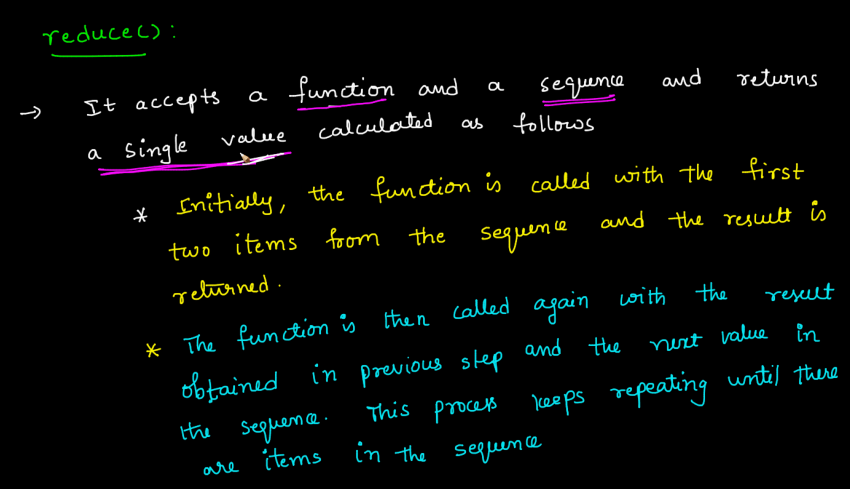 reduce():
→ It accepts a function and a sequence and returns
a single value calculated as follows
* Initially, the function is called with the first
two items from the sequence and the result is
returned.
* The function is then called again with the result
obtained in previous step and the next value in
the sequence. This process keeps repeating until there
are items in the sequence